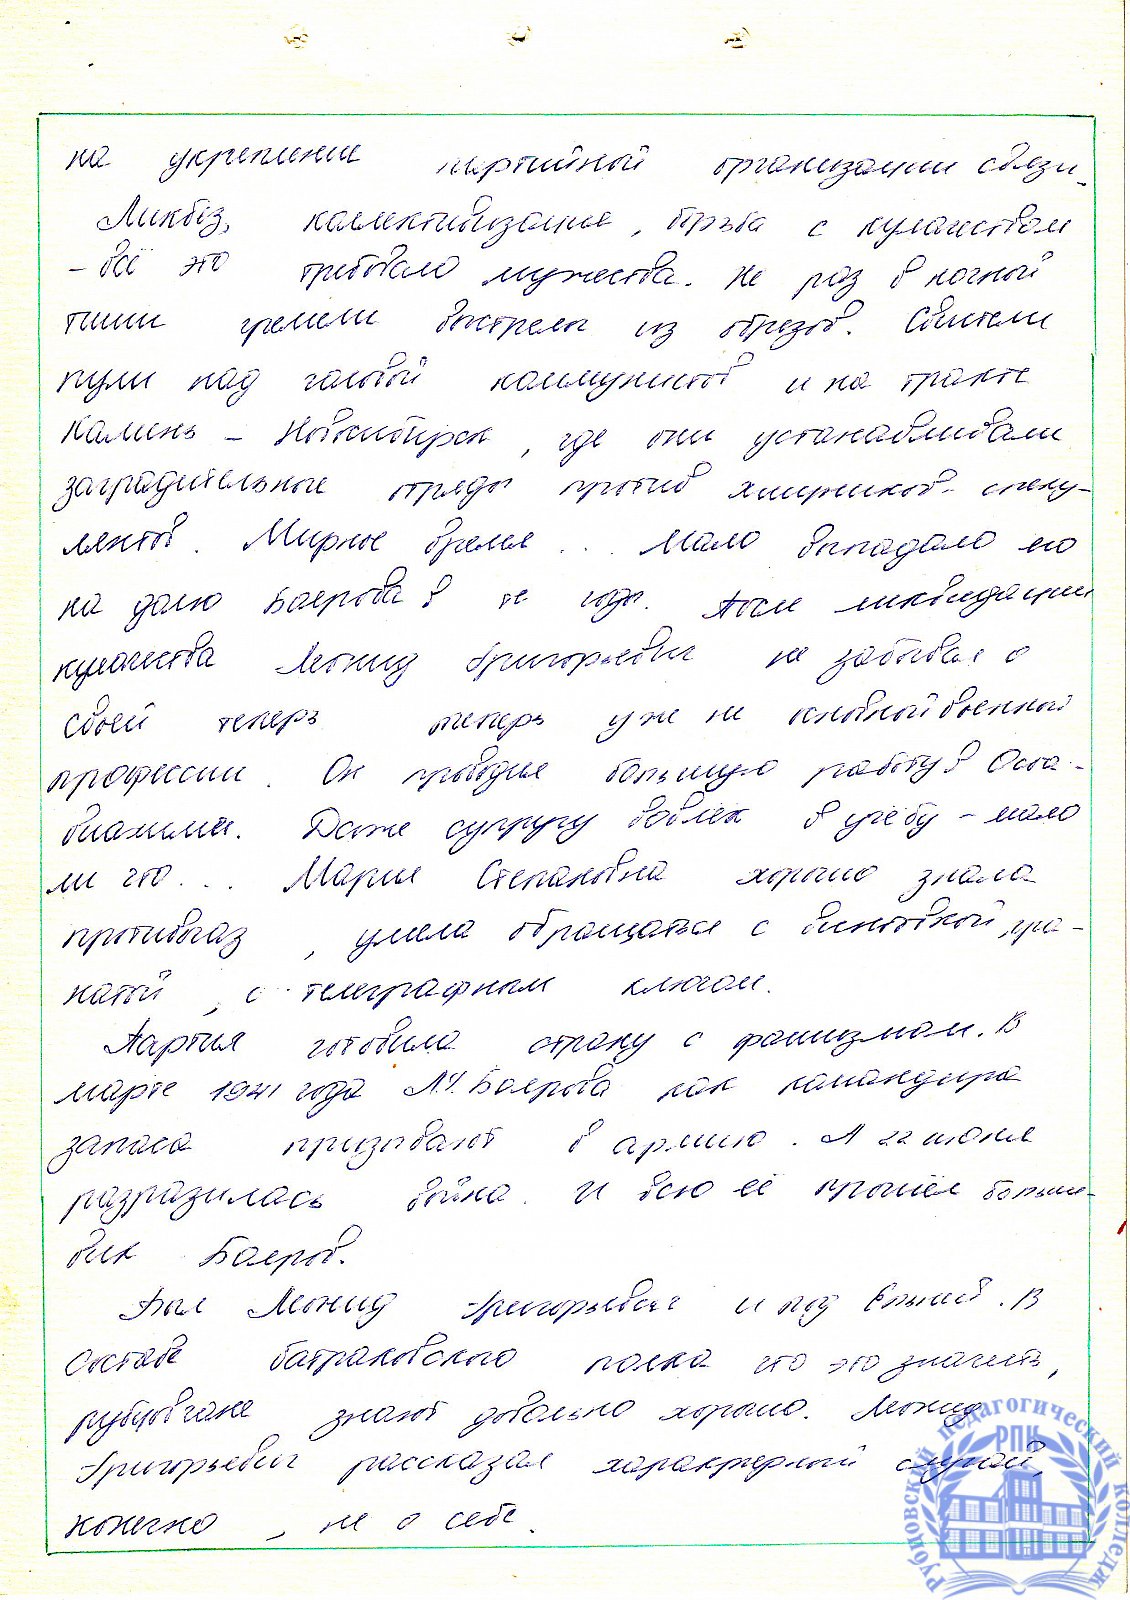 на укрепление партийной организации связи.
Ликбез, коллективизация, борьба с кулачеством
– всё это требовало мужества. Не раз в ночной
тиши гремели выстрелы из обрезов. Свистели
пули над головой коммунистов и на тракте
Камень – Новосибирск, где они устанавливали
заградительные отряды против хищников- спеку-
лянтов. Мирное время... Мало выпадало его
на долю Боярова в те годы. После ликвидации
кулачества Леонид Григорьевич не забывал о
своей теперь теперь уже не основной военной
профессии. Он проводил большую работу в Осоа-
виахиме. Даже супругу вовлёк в учёбу – мало
ли что... Мария Степановна хорошо знала
противогаз, умела обращаться с винтовкой, гра-
натой, с телеграфным ключом.
Партия готовила страну с фашизмом. В
марте 1941 года Л.Г. Боярова как командира
запаса призывают в армию. А 22 июня
разразилась война. И всю её прошёл больше-
вик Бояров.
Был Леонид Григорьевич и под Ельней. В
составе батраковского полка что это значит,
рубцовчане знают довольно хорошо. Леонид
Григорьевич рассказал характерный случай,
конечно, не о себе.
Рубцовский педагогический колледж
РПК